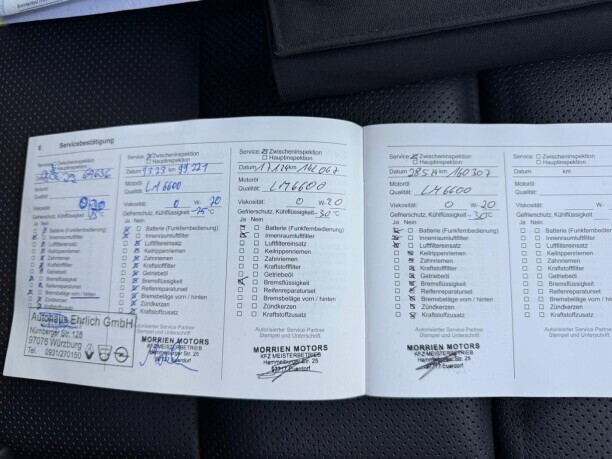 6 Servicebestätigung
Service: Zwischeninspektion
Hauptinspektion
Motoröl
Qualität:
Viskosität: 0 W- 20
Gefrierschutz, Kühlflüssigkeit
Ja Nein
Batterie (Funkfernbedienung)
Innenraumluftfilter
Luftfiltereinsatz
Keilrippenriemen
Zahnriemen
Kraftstofffilter
Getriebeöl
Bremsflüssigkeit
Reifenreparaturset
Bremsbeläge vorn / hinten
Zündkerzen
Autohaus Ehrlich GmbH
Nürnberger Str. 126
97076 Würzburg
Tel. 0931/270150
Service: Zwischeninspektion
Hauptinspektion
Datum km 99 221
Motoröl
Qualität: LM 6600
Viskosität: 0 W- 20
Gefrierschutz, Kühlflüssigkeit -25 °C
Ja Nein
Batterie (Funkfernbedienung)
Innenraumluftfilter
Luftfiltereinsatz
Keilrippenriemen
Zahnriemen
Kraftstofffilter
Getriebeöl
Bremsflüssigkeit
Reifenreparaturset
Bremsbeläge vorn / hinten
Zündkerzen
Kraftstoffzusatz
Autorisierter Service Partner
Stempel und Unterschrift
MORRIEN MOTORS
KFZ MEISTERBETRIEB
Hammelburger Str. 25
97717 Euerdorf
Service: Zwischeninspektion
Hauptinspektion
Datum km 141 067
Motoröl
Qualität: LM6600
Viskosität: 0 W- 20
Gefrierschutz, Kühlflüssigkeit -30 °C
Ja Nein
Batterie (Funkfernbedienung)
Innenraumluftfilter
Luftfiltereinsatz
Keilrippenriemen
Zahnriemen
Kraftstofffilter
Getriebeöl
Bremsflüssigkeit
Reifenreparaturset
Bremsbeläge vorn / hinten
Zündkerzen
Kraftstoffzusatz
Autorisierter Service Partner
Stempel und Unterschrift
MORRIEN MOTORS
KFZ MEISTERBETRIEB
Hammelburger Str. 25
97717 Euerdorf
Service: Zwischeninspektion
Hauptinspektion
Datum km 160 307
Motoröl
Qualität: LM6600
Viskosität: 0 W- 20
Gefrierschutz, Kühlflüssigkeit -30 °C
Ja Nein
Batterie (Funkfernbedienung)
Innenraumluftfilter
Luftfiltereinsatz
Keilrippenriemen
Zahnriemen
Kraftstofffilter
Getriebeöl
Bremsflüssigkeit
Reifenreparaturset
Bremsbeläge vorn / hinten
Zündkerzen
Kraftstoffzusatz
Autorisierter Service Partner
Stempel und Unterschrift
MORRIEN MOTORS
KFZ MEISTERBETRIEB
Hammelburger Str. 25
97717 Euerdorf
Service: Zwischeninspektion
Hauptinspektion
Datum km
Motoröl
Qualität:
Viskosität: W-
Gefrierschutz, Kühlflüssigkeit
Ja Nein
Batterie (Funkfernbedienung)
Innenraumluftfilter
Luftfiltereinsatz
Keilrippenriemen
Zahnriemen
Kraftstofffilter
Getriebeöl
Bremsflüssigkeit
Reifenreparaturset
Bremsbeläge vorn / hinten
Zündkerzen
Kraftstoffzusatz
Autorisierter Service Partner
Stempel und Unterschrift